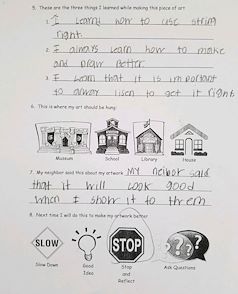 5. These are the three things I learned while making this piece of art
1. I learnd how to use string
right
2. I always learn how to make
and draw better
3. I learn that it is important
to alway lisen to get it right
6. This is where my art should be hung:
Museum School Library House
7. My neighbor said this about my artwork My neibor said
that it will look good
when I show it to threm
8. Next time I will do this to make my artwork better
SLOW
STOP
Slow Down Good Idea Stop and Reflect Ask Questions